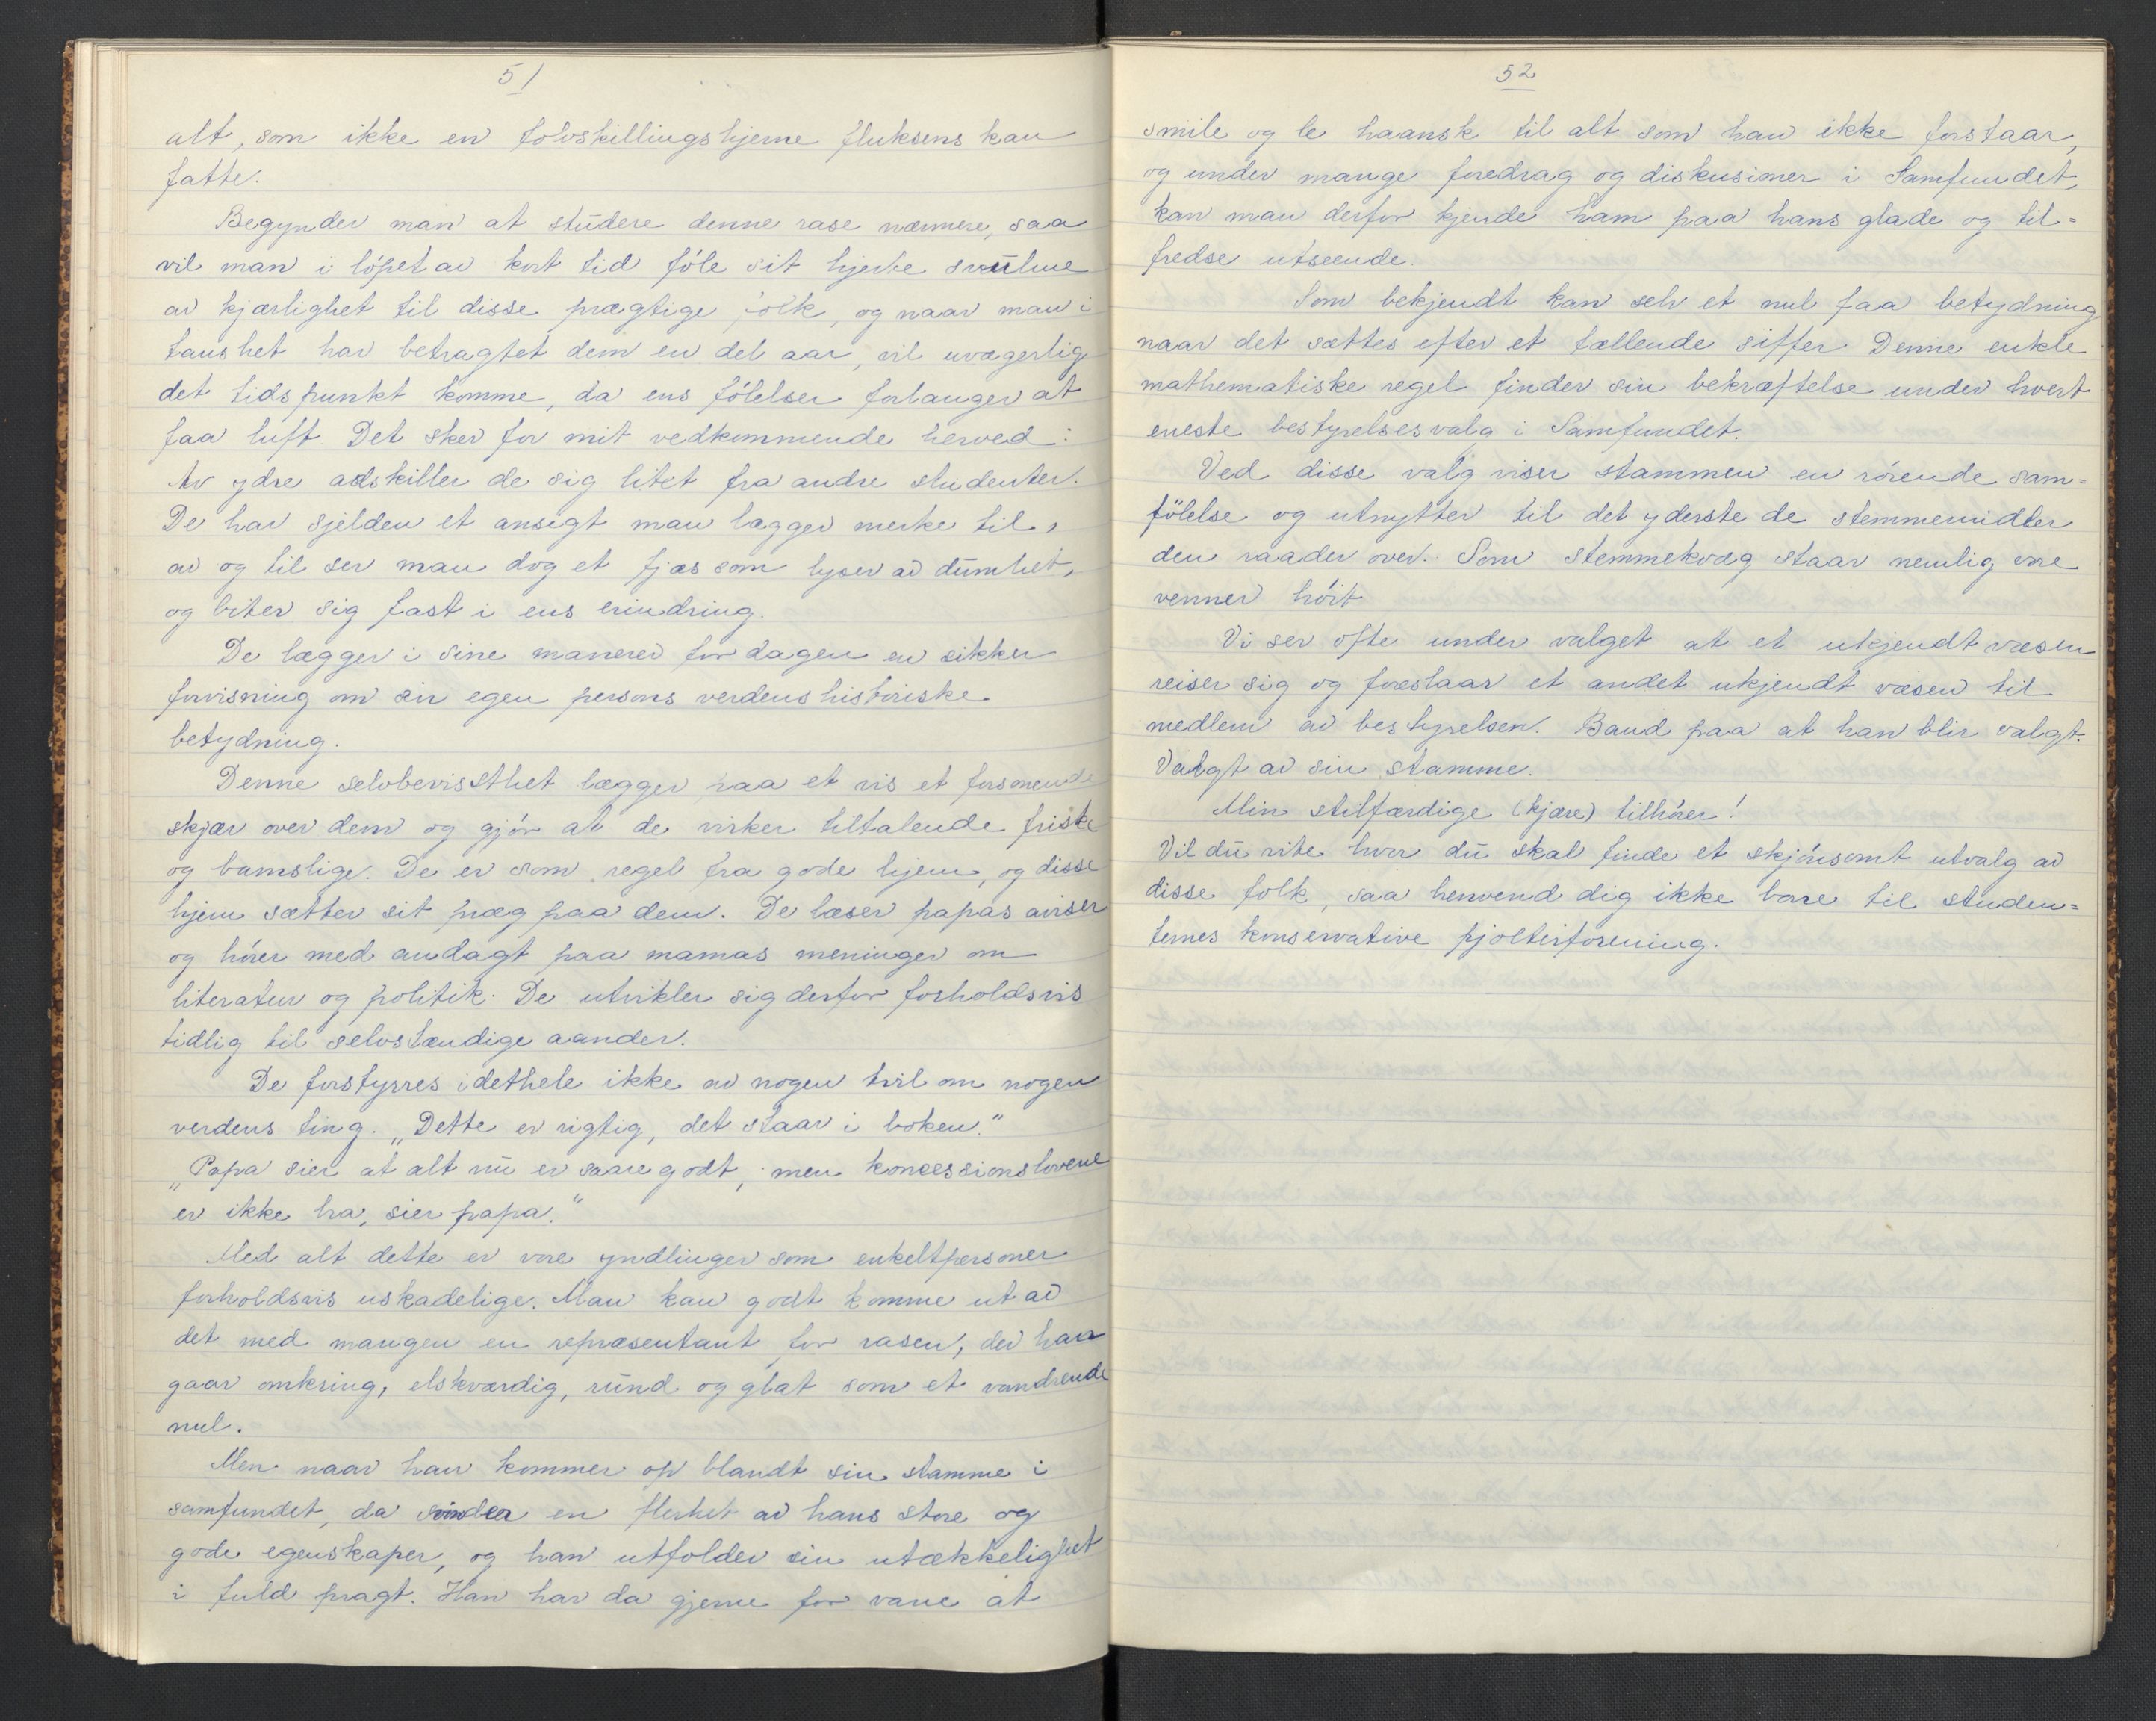 51
alt, som ikke en tolvskillingshjerne fluksens kan
fatte.
Begynder man at studere denne rase nærmere, saa
vil man i løpet av kort tid føle sit hjerte svulme
av kjærlighet til disse prægtige folk, og naar man i
taushet har betragtet dem en del aar, vil uvægerlig
det tidspunkt komme, da ens følelser forlanger at
faa luft. Det sker for mit vedkommende herved:
Av ydre adskiller de sig litet fra andre studenter.
De har sjelden et ansigt man lægger merke til,
av og til ser man dog et fjæs som lyser av dumhet,
og biter sig fast i ens erindring.
De lægger i sine manerer for dagen en sikker
forvisning om sin egen persons verdenshistoriske
betydning.
Denne selvbevissthet lægger paa et vis et forsonende
skjær over dem og gjør at de virker tiltalende friske
og barnslige. De er som regel fra gode hjem, og disse
hjem sætter sit præg paa dem. De læser papas aviser
og hører med andagt paa mamas meninger om
literatur og politik. De utvikler sig derfor forholdsvis
tidlig til selvstændige aander.
De forstyrres idethele ikke av nogen tvil om nogen
verdens ting. „Dette er rigtig, det staar i boken."
„Papa sier at alt nu er saare godt, men koncessionslovene
er ikke bra, sier papa."
Med alt dette er vore yndlinger som enkeltpersoner
forholdsvis uskadelige. Man kan godt komme ut av
det med mangen en repræsentant for rasen, der han
gaar omkring, elskværdig, rund og glat som et vandrende
nul.
Men naar han kommer op blandt sin stamme i
samfundet, da svinder en flerhet av hans store og
gode egenskaper, og han utfolder sin utækkelighet
i fuld pragt. Han har da gjerne for vane at
52
smile og le haansk til alt som han ikke forstaar,
og under mange foredrag og diskusioner i Samfundet,
kan man derfor kjende ham paa hans glade og til=
fredse utseende.
Som bekjendt kan selv et nul faa betydning
naar det sættes efter et tællende siffer. Denne enkle
mathematiske regel finder sin bekræftelse under hvert
eneste bestyrelsesvalg i Samfundet.
Ved disse valg viser stammen en rørende sam=
følelse og utnytter til det yderste de stemmemidler
den raader over. Som stemmekvæg staar nemlig vore
venner høit
Vi ser ofte under valget at et ukjendt væsen
reiser sig og foreslaar et andet ukjendt væsen til
medlem av bestyrelsen. Band paa at han blir valgt.
Valgt av sin stamme.
Min stilfærdige (kjære) tilhører!
Vil du vite hvor du skal finde et skjønsomt utvalg av
disse folk, saa henvend dig ikke bare til studen=
ternes konservative pjolterforening.